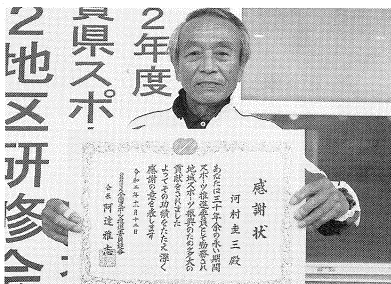 2年度
賀県スポ
2地区研修会
感謝状
河村圭三殿
あなたは三十年余の永い期間
スポーツ推進委員として勤務され
地域スポーツ振興のため多大の
貢献をされました
よってその功績をたたえ深く
感謝の意を表します
令和二年十一月十三日
会長 阿達雅志